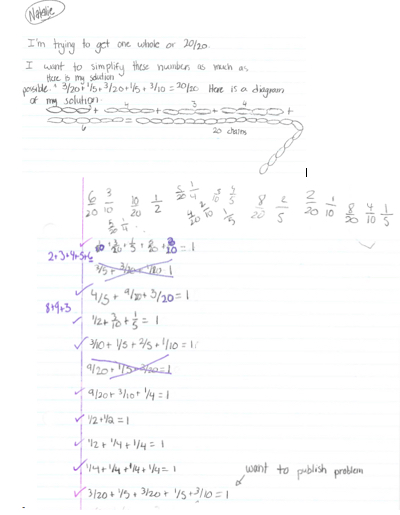 Natalie
I'm trying to get one whole or 20/20.
I want to simplify these numbers as much as
Here is my solution
possible. 3/20 + 1/5 + 3/20 + 1/5 + 3/10 = 20/20 Here is a diagram
of my solution.
+ 4 + 3 + 4 +
6 = 20 chains
6/20 3/10 10/20 1/2 5/20 1/4 4/5 8/20 2/5 2/20 1/10 8/20 4/10 1/5
5/20 1/4 4/20 2/10 1/5
2+3+4+5+6 + 3/20 + 1/5 + 5/20 + = 1
3/5 + 3/20 + = 1
4/5 + 9/20 + 3/20 = 1
8+9+3
1/2 + 3/10 + 1/5 = 1
3/10 + 1/5 + 2/5 + 1/10 = 1
9/20 + 1/5 + 3/20 = 1
9/20 + 3/10 + 1/4 = 1
1/2 + 1/2 = 1
1/2 + 1/4 + 1/4 = 1
1/4 + 1/4 + 1/4 + 1/4 = 1
want to publish problem
3/20 + 1/5 + 3/20 + 1/5 + 3/10 = 1